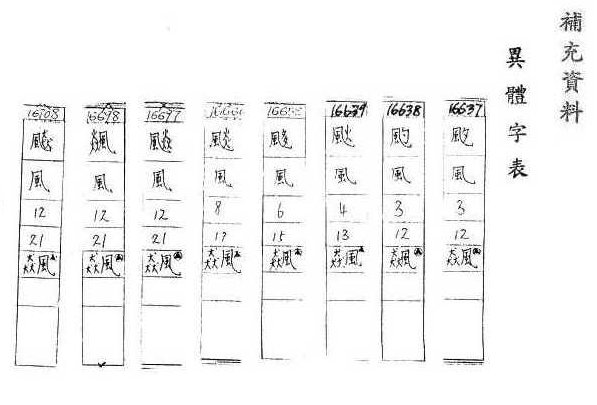 補充資料
異體字表
16637
風
3
12
飆
16638
風
3
12
飆
16639
風
4
13
飆
風
6
15
飆
風
8
17
飆
16697
飈
風
12
21
飆
16698
飊
風
12
21
飆
16708
飇
風
12
21
飆